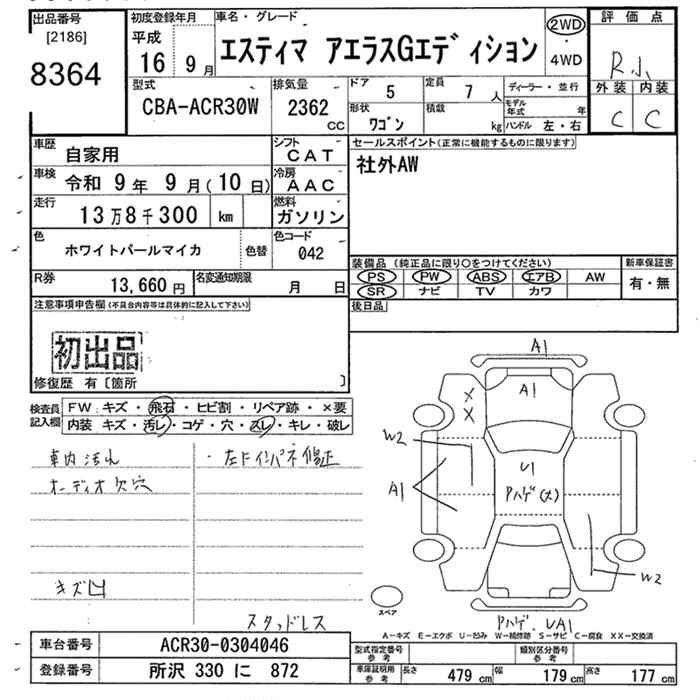 出品番号
[2186]
8364
初度登録年月
平成
16 9 月
車名・グレード
エスティマ アエラスGエディション
2WD
・
4WD
評価点
R小
外装 内装
C C
型式
CBA-ACR30W
排気量
2362
CC
ドア 5
定員 7 人
ディーラー・並行
形状 ワゴン
積載 kg
モデル年式 年
ハンドル 左・右
車歴 自家用
シフト CAT
車検 令和 9 年 9 月 ( 10 日)
冷房 AAC
走行 13 万 8 千 300 km
燃料 ガソリン
色 ホワイトパールマイカ 色替
色コード 042
R券 13,660 円
名変通知期限 月 日
セールスポイント(正常に機能するものに限ります)
社外AW
装備品 (純正品に限り〇をつけてください)
新車保証書
PS PW ABS エアB AW
SR ナビ TV カワ
有・無
後日品
注意事項申告欄(不具合内容等は具体的に記入して下さい)
初出品
修復歴 有〔箇所 〕
検査員記入欄
FW・キズ・飛石・ヒビ割・リペア跡・×要
内装 キズ・汚レ・コゲ・穴・スレ・キレ・破レ
車内汚れ
オーディオ欠穴
・左ドインパネ修正
キズ凹
スタッドレス
A1
A1
X
X
W2
A1
U1
Pハゲ(大)
W2
スペア
Pハゲ、UA1
A-キズ E-エクボ U-凹み W-補修跡 S-サビ C-腐食 XX-交換済
車台番号 ACR30-0304046
登録番号 所沢 330 に 872
型式指定番号 参考
類別区分番号 参考
車庫証明用 参考
長さ 479 cm
幅 179 cm
高さ 177 cm